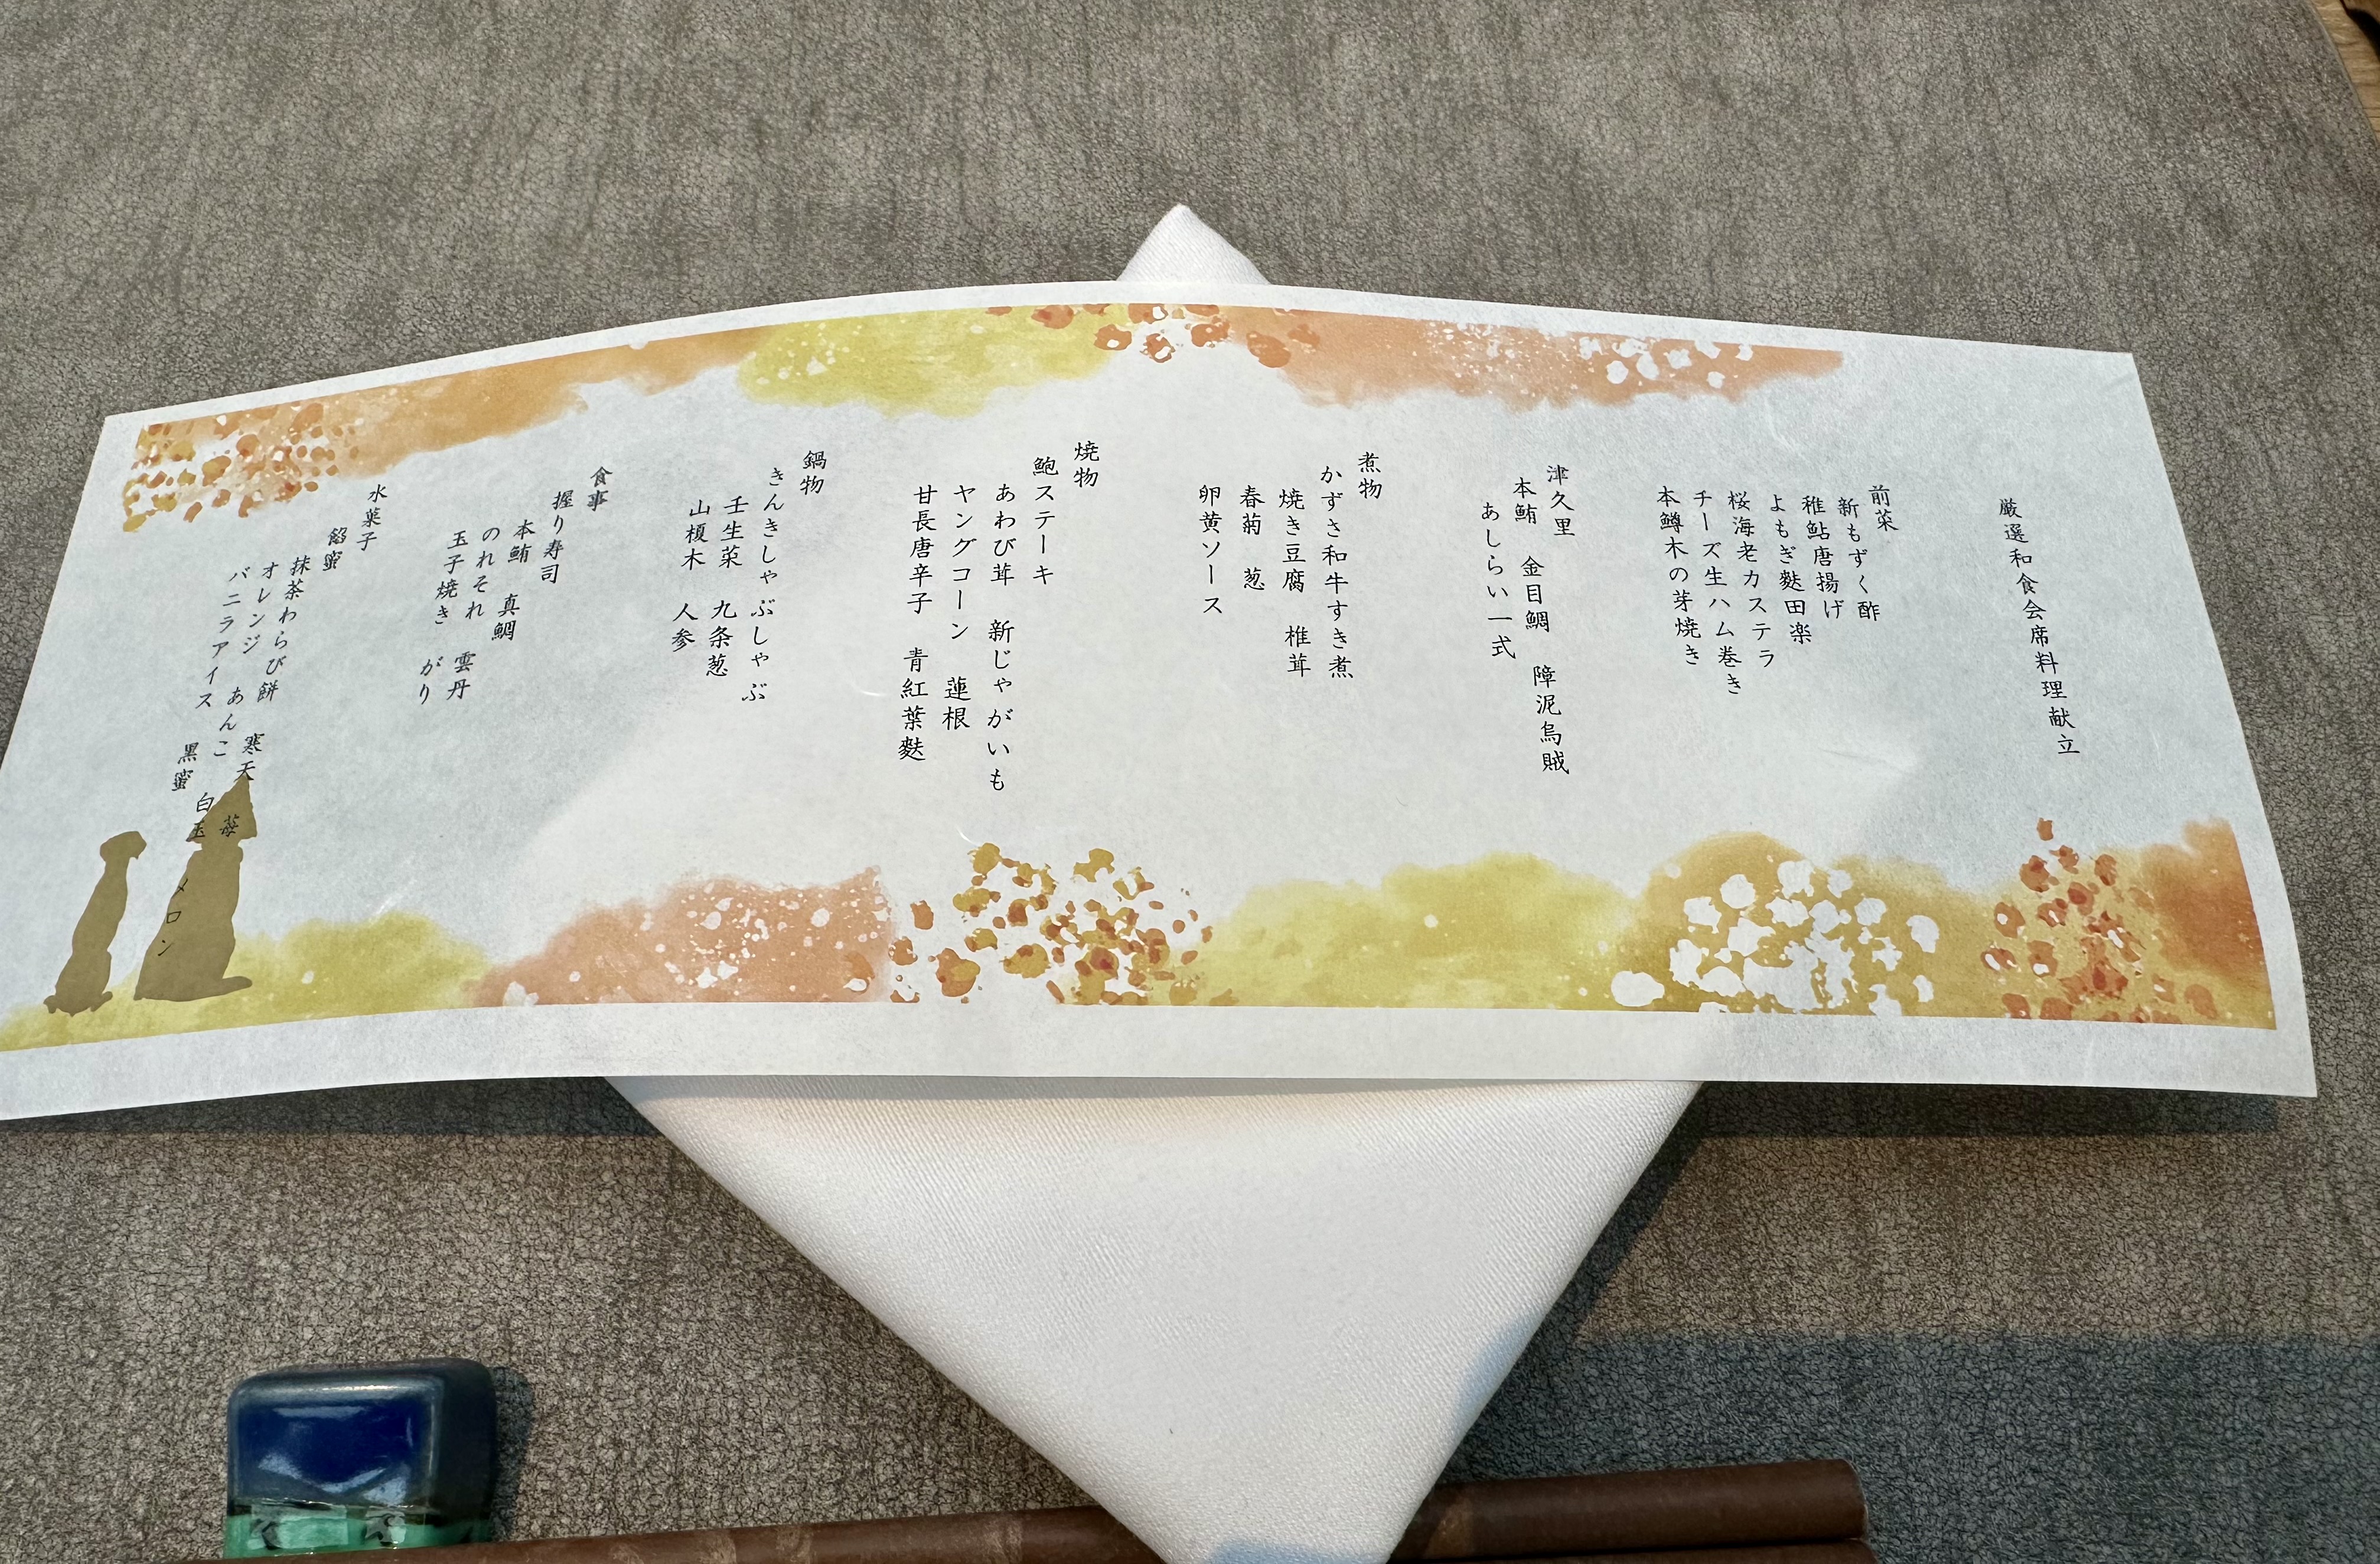 厳選和食会席料理献立
前菜
新もずく酢
稚鮎唐揚げ
よもぎ麩田楽
桜海老カステラ
チーズ生ハム巻き
本鱒木の芽焼き
津久里
本鮪　金目鯛　障泥烏賊
あしらい一式
煮物
かずさ和牛すき煮
焼き豆腐　椎茸
春菊　葱
卵黄ソース
焼物
鮑ステーキ
あわび茸　新じゃがいも
ヤングコーン　蓮根
甘長唐辛子　青紅葉麩
鍋物
きんきしゃぶしゃぶ
壬生菜　九条葱
山榎木　人参
食事
握り寿司
本鮪　真鯛
のれそれ　雲丹
玉子焼き　がり
水菓子
餡蜜
抹茶わらび餅　寒天　苺
オレンジ　あんこ　白玉
バニラアイス　黒蜜　メロン